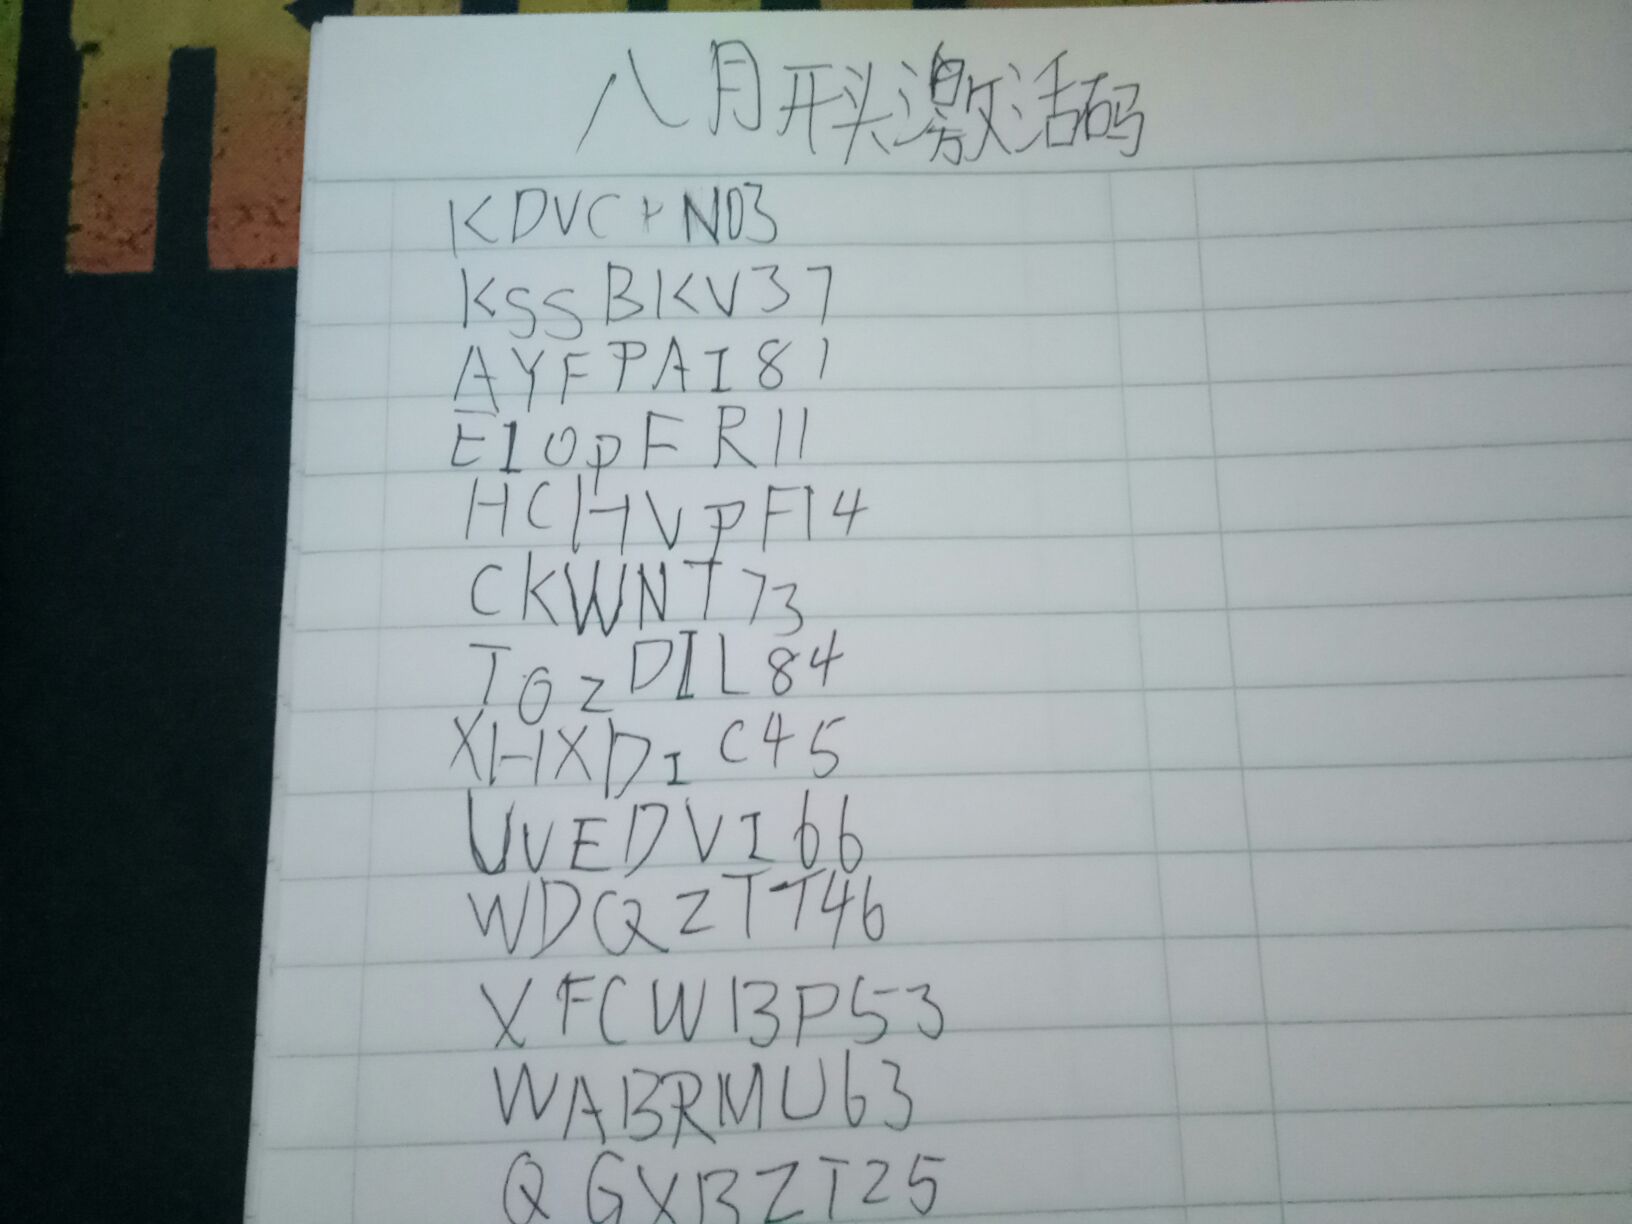 八月开头激活码
KDVCtN03
KSSBKV37
AYFPAI81
EIOPFR11
HCHVPF14
CKWNT73
TGZDIL84
XHXDIC45
UVEDVI66
WDQZTT46
XFCWBP53
WABRMU63
QGXBZT25